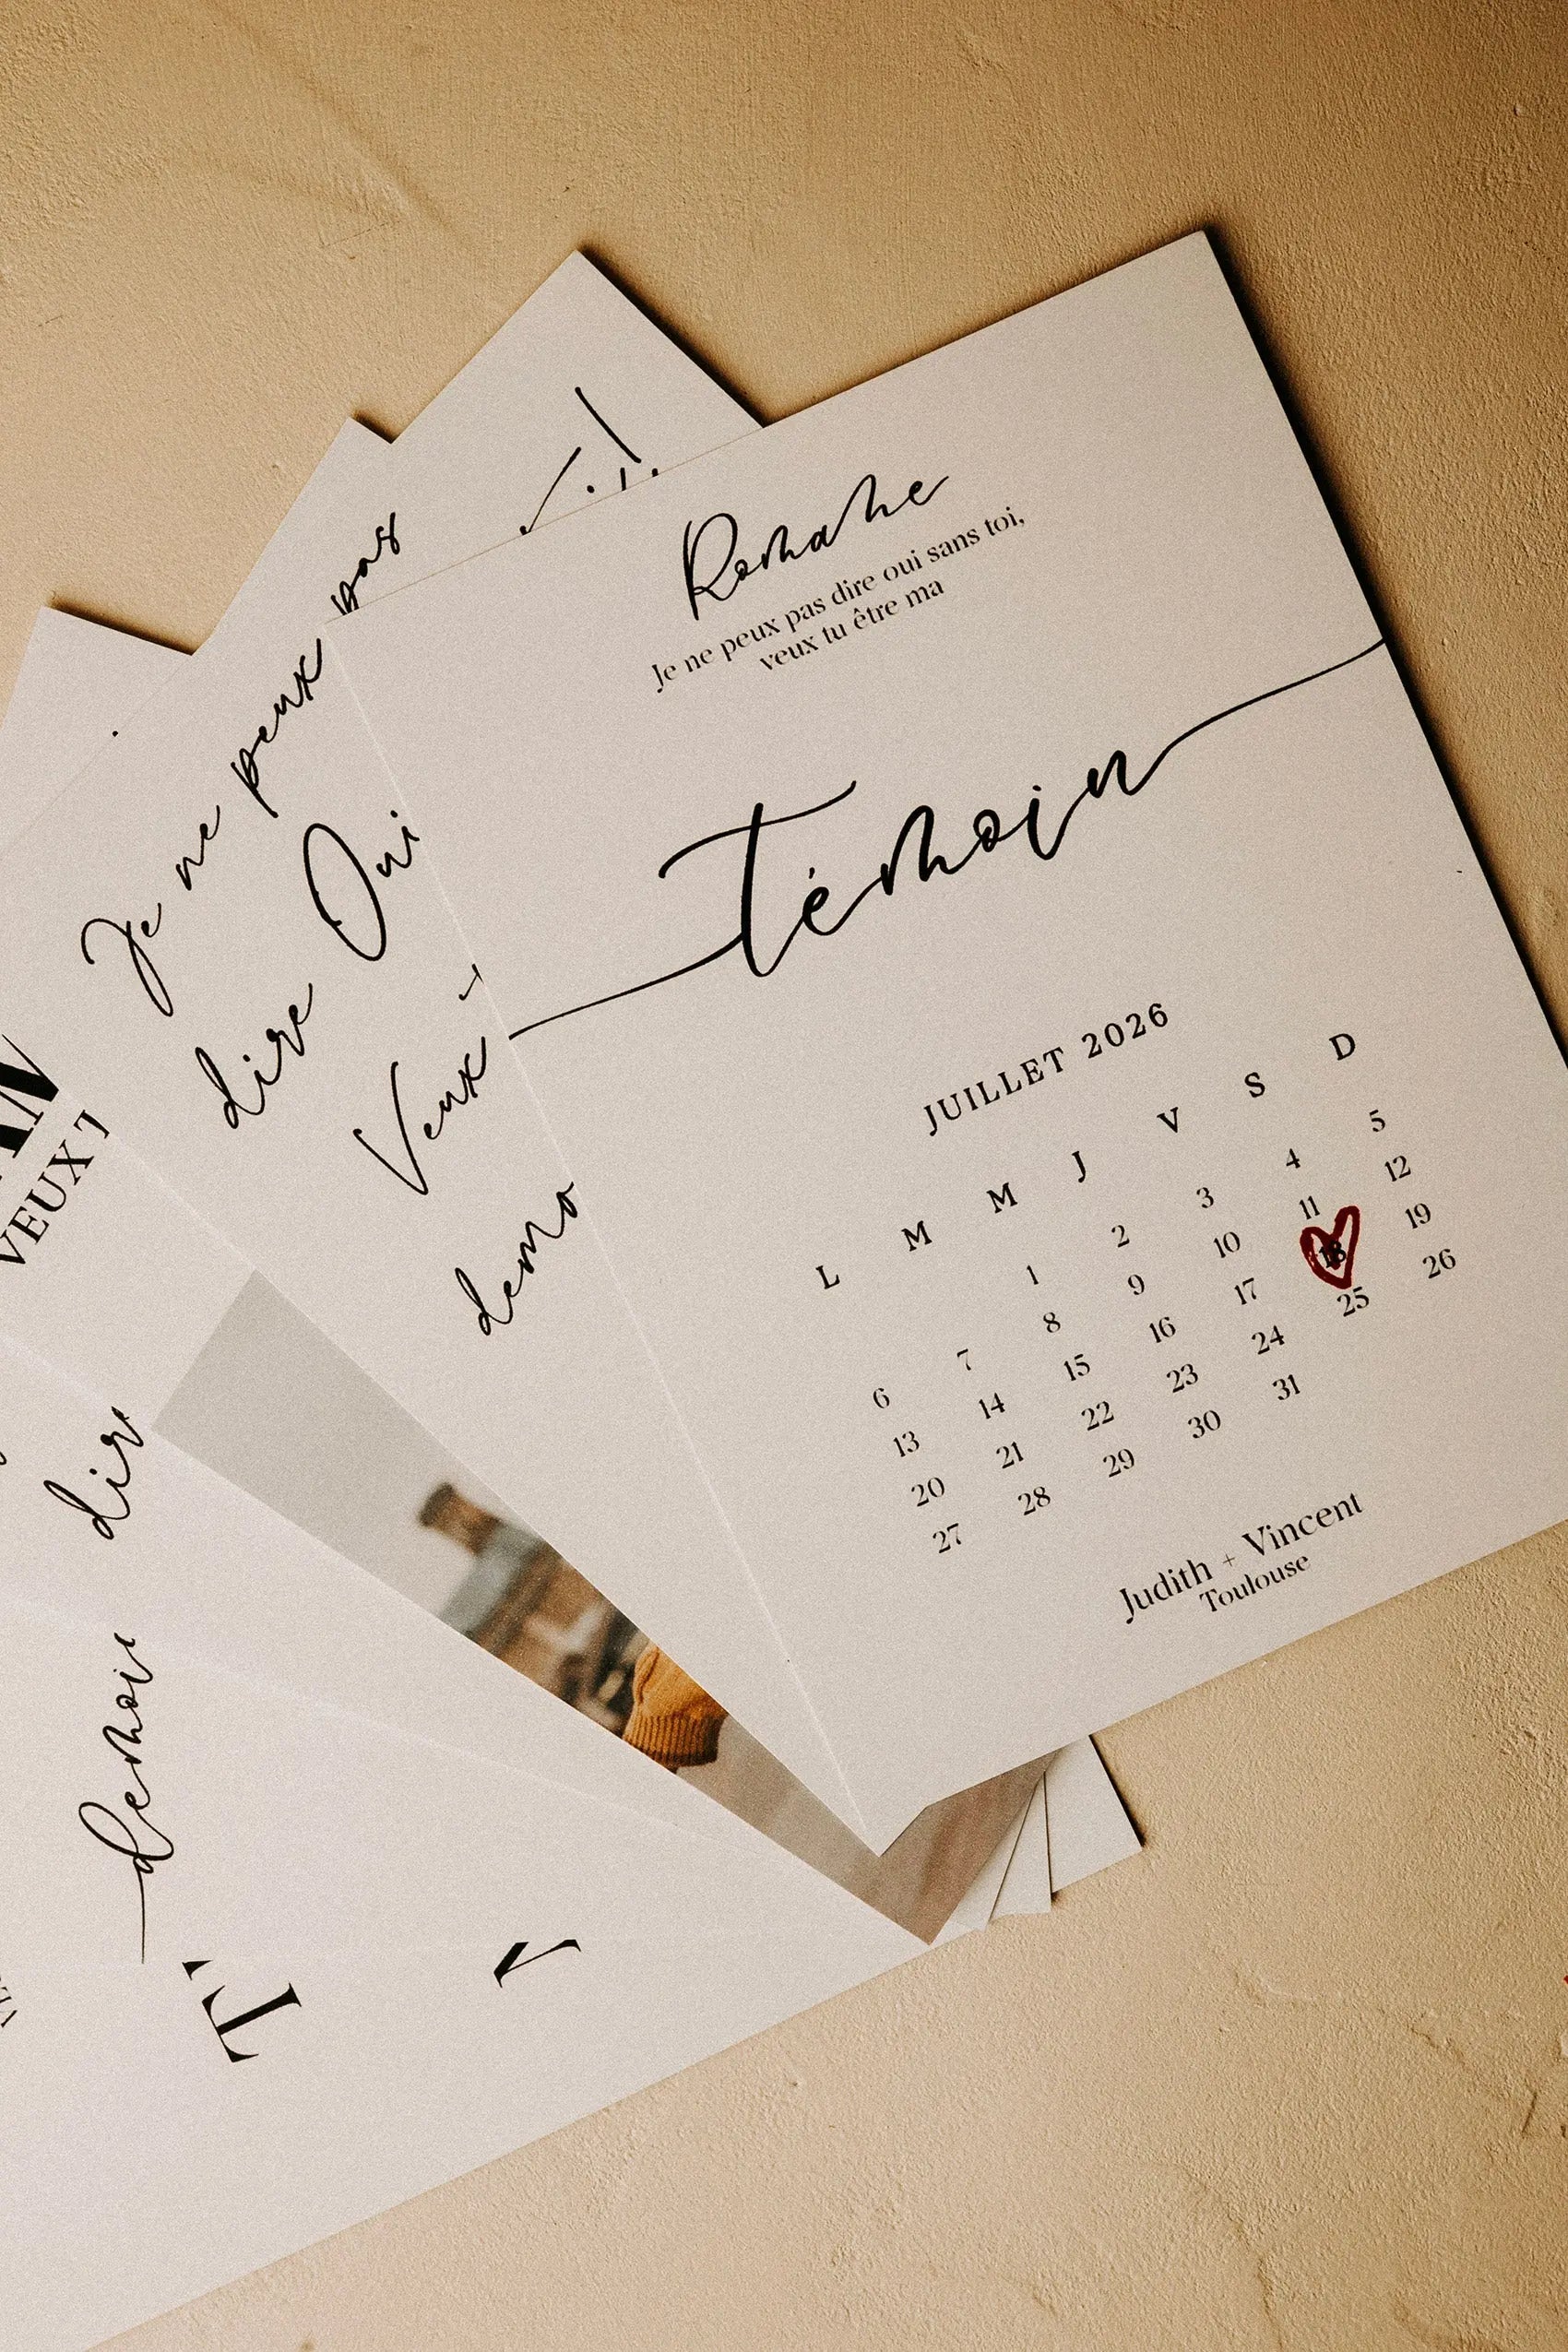 Romane
Je ne peux pas dire oui sans toi,
veux tu être ma
Témoin
JUILLET 2026
L M M J V S D
1 2 3 4 5
6 7 8 9 10 11 12
13 14 15 16 17 18 19
20 21 22 23 24 25 26
27 28 29 30 31
Judith + Vincent
Toulouse
Je ne peux pas
dire Oui
Veux
demo
VEUX T
dir
demoi
T'